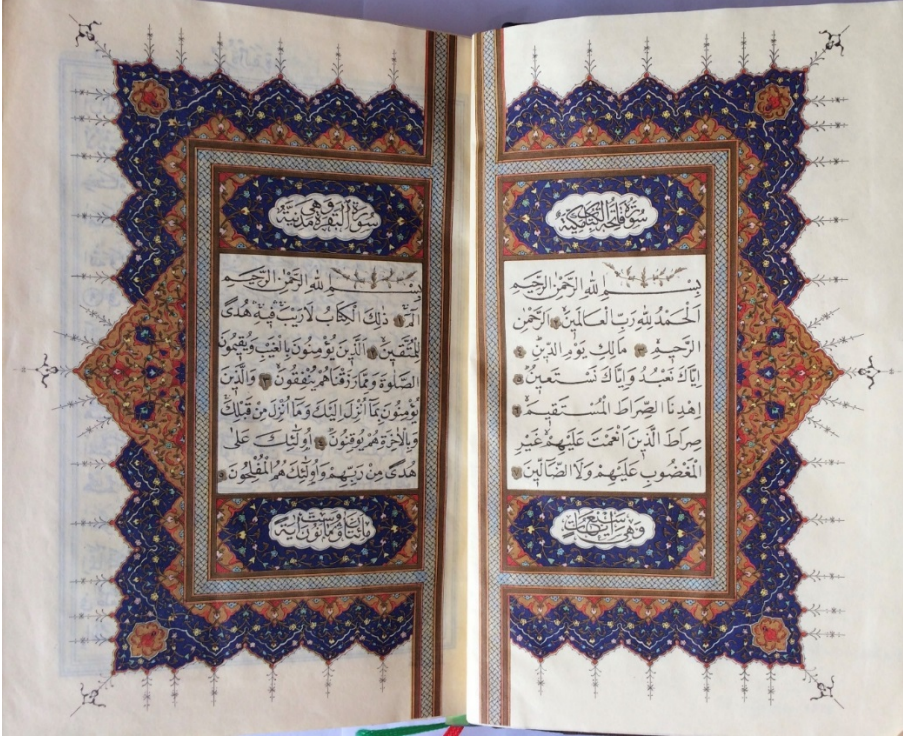 سُورَةُ فَاتِحَةِ الْكِتَابِ مَكِّيَّةٌ
بِسْمِ اللهِ الرَّحْمٰنِ الرَّحِيمِ
اَلْحَمْدُ لِلهِ رَبِّ الْعَالَمِينَ ٢ اَلرَّحْمٰنِ
الرَّحِيمِ ٣ مَالِكِ يَوْمِ الدِّينِ ٤
اِيَّاكَ نَعْبُدُ وَاِيَّاكَ نَسْتَعِينُ ٥
اِهْدِنَا الصِّرَاطَ الْمُسْتَقِيمَ ٦
صِرَاطَ الَّذِينَ اَنْعَمْتَ عَلَيْهِمْ غَيْرِ
الْمَغْضُوبِ عَلَيْهِمْ وَلَا الضَّالِّينَ ٧
وَهِيَ سَبْعُ آيَاتٍ
سُورَةُ الْبَقَرَةِ وَهِيَ مَدَنِيَّةٌ
بِسْمِ اللهِ الرَّحْمٰنِ الرَّحِيمِ
الٓمٓ ١ ذٰلِكَ الْكِتَابُ لَا رَيْبَ فِيهِ هُدًى
لِلْمُتَّقِينَ ٢ اَلَّذِينَ يُؤْمِنُونَ بِالْغَيْبِ وَيُقِيمُونَ
الصَّلٰوةَ وَمِمَّا رَزَقْنَاهُمْ يُنْفِقُونَ ٣ وَالَّذِينَ
يُؤْمِنُونَ بِمَٓا اُنْزِلَ اِلَيْكَ وَمَٓا اُنْزِلَ مِنْ قَبْلِكَ
وَبِالْاٰخِرَةِ هُمْ يُوقِنُونَ ٤ اُو۬لٰٓئِكَ عَلٰى
هُدًى مِنْ رَبِّهِمْ وَاُو۬لٰٓئِكَ هُمُ الْمُفْلِحُونَ ٥
مِائَتَانِ وَسِتٌّ وَثَمَانُونَ آيَةً